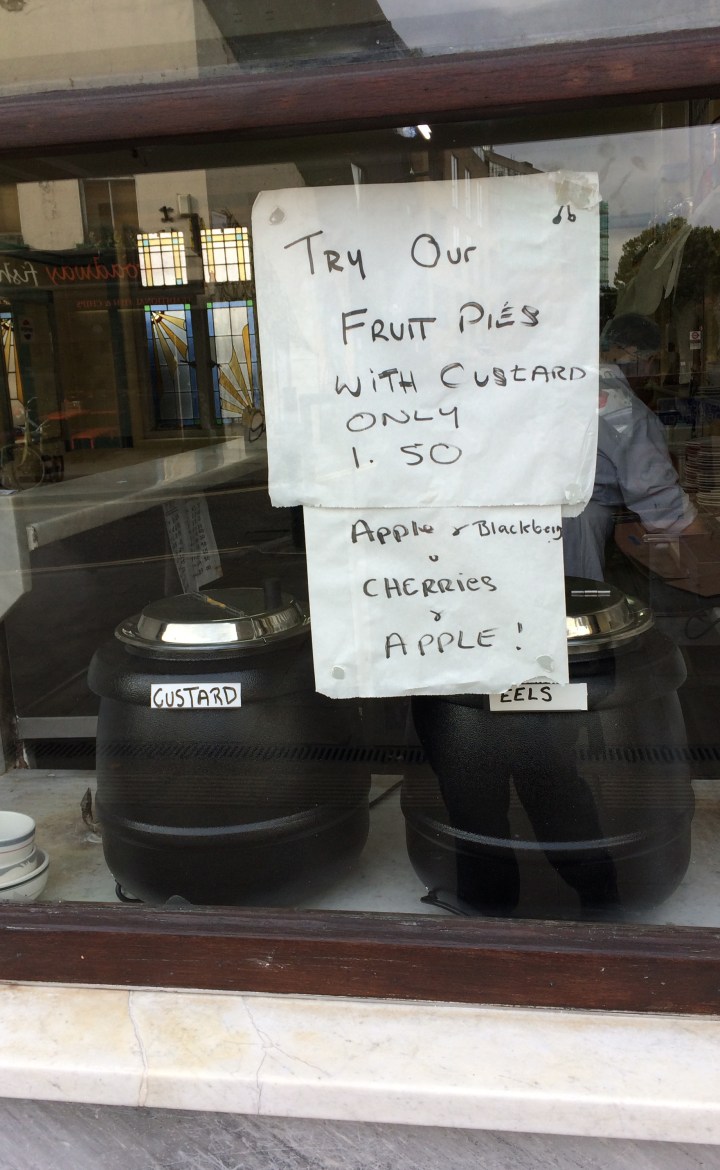 Try Our
FRUIT PIES
WITH CUSTARD
ONLY
1. 50
Apple & Blackberry
CHERRIES
&
APPLE!
CUSTARD
EELS